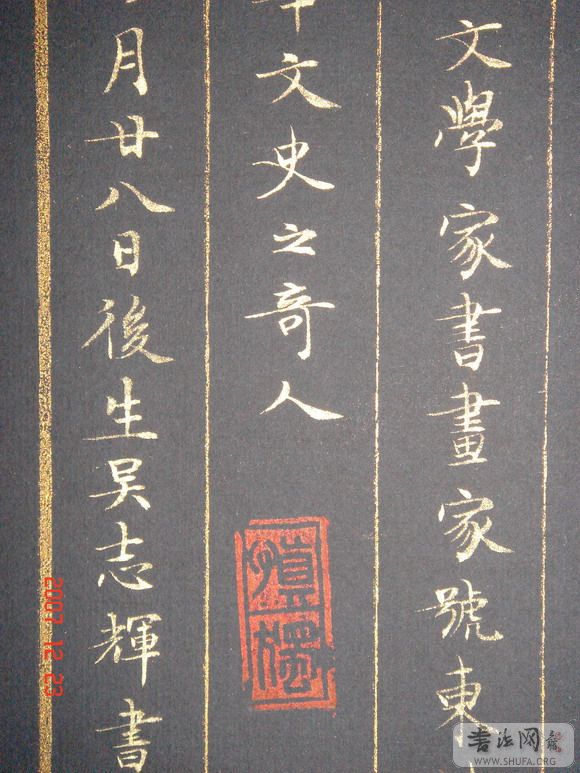 文學家書畫家號東
文史之奇人
月廿八日後生吴志輝書
2007 12 23
書法网
WWW.SHUFA.ORG